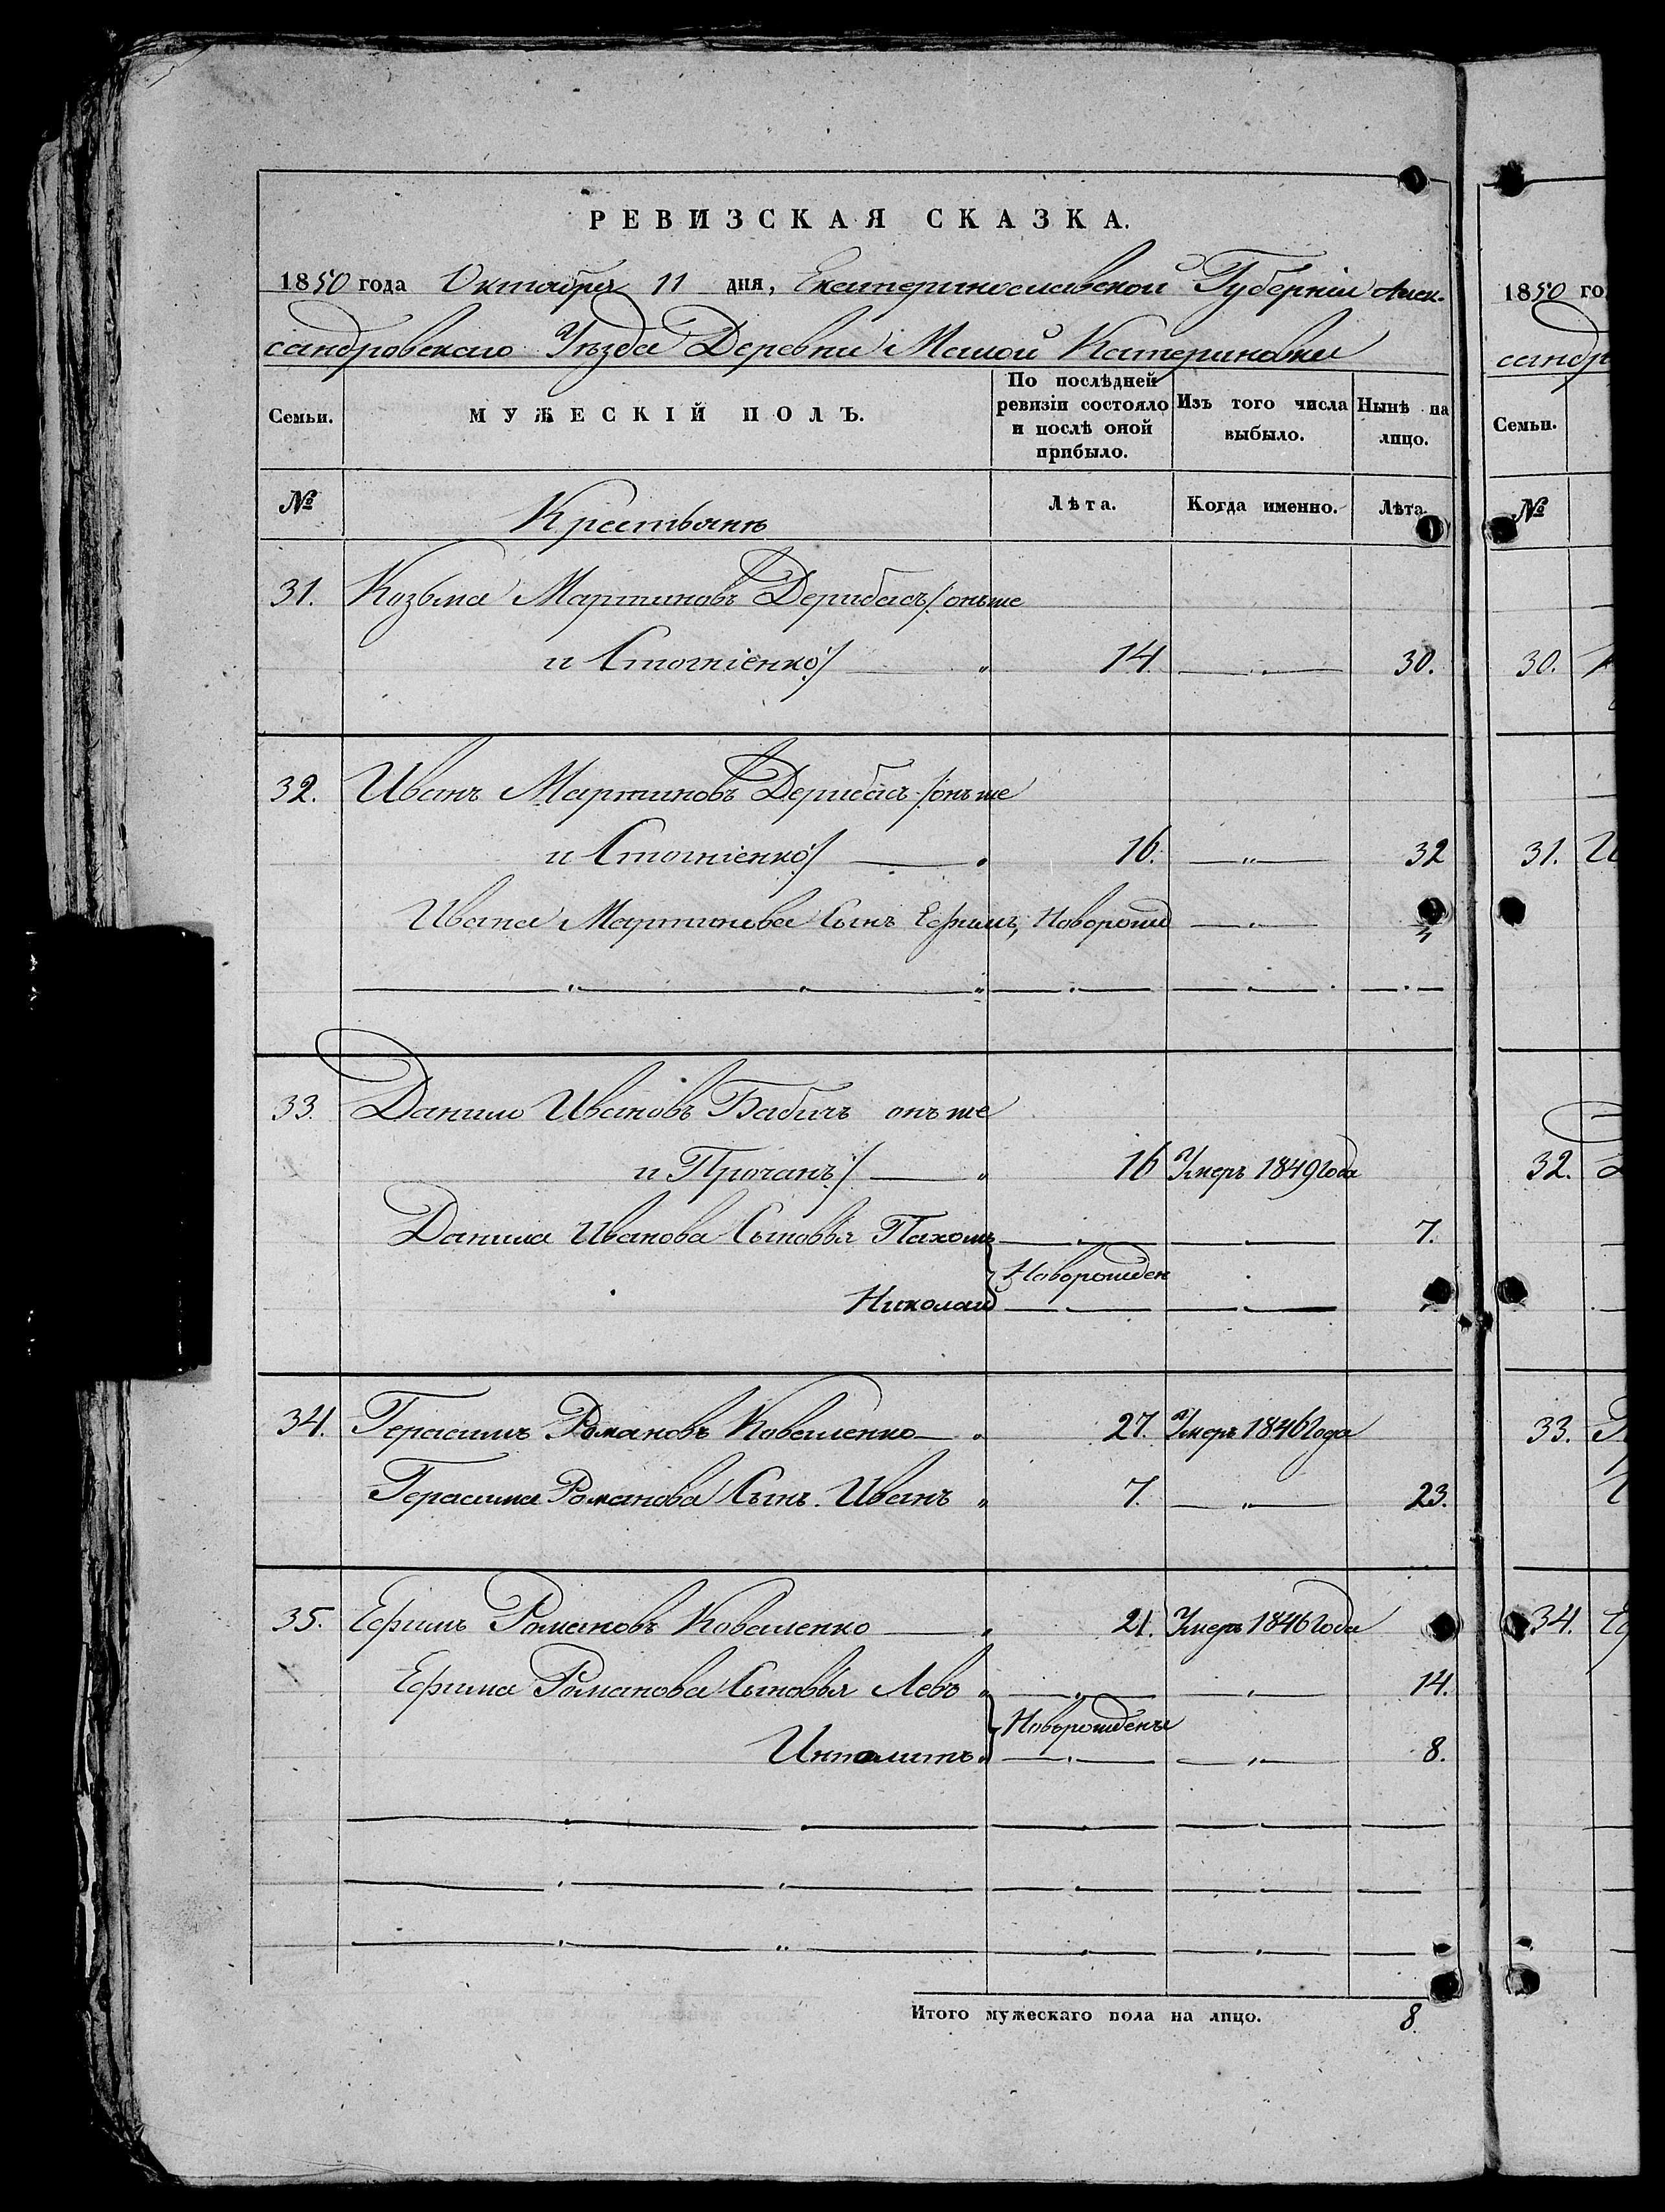 РЕВИЗСКАЯ СКАЗКА.
1850 года Октября 11 дня, Екатеринославской Губерніи Алек-
сандровскаго Уѣзда Деревни Малой Катериновки
Семьи. МУЖЕСКІЙ ПОЛЪ. По послѣдней ревизіи состояло и послѣ оной прибыло. Изъ того числа выбыло. Нынѣ на лицо.
№ Крестьянъ Лѣта. Когда именно. Лѣта.
31. Козьма Мартиновъ Дерибасъ /: онъ же
и Стогніенко :/ 14. 30.
32. Иванъ Мартиновъ Дерибасъ /: онъ же
и Стогніенко :/ 16. 32
Ивана Мартинова Сынъ Ефимъ, Новорожд 4
33. Данило Ивановъ Бабичъ онъ же
и Прочанъ :/ 16 Умеръ 1849 года
Данила Иванова Сыновья Пахомъ 7.
Новорожден
Николай
34. Герасимъ Романовъ Коваленко 27. Умеръ 1846 года
Герасима Романова Сынъ Иванъ 7. 23.
35. Ефимъ Романовъ Коваленко 21. Умеръ 1846 года
Ефима Романова Сыновья Левъ 14.
Новорожденъ
Иполитъ 8.
Итого мужескаго пола на лицо. 8.
1850 го
сандр
Семьи.
№
30.
31. И
32.
33.
34. Еф